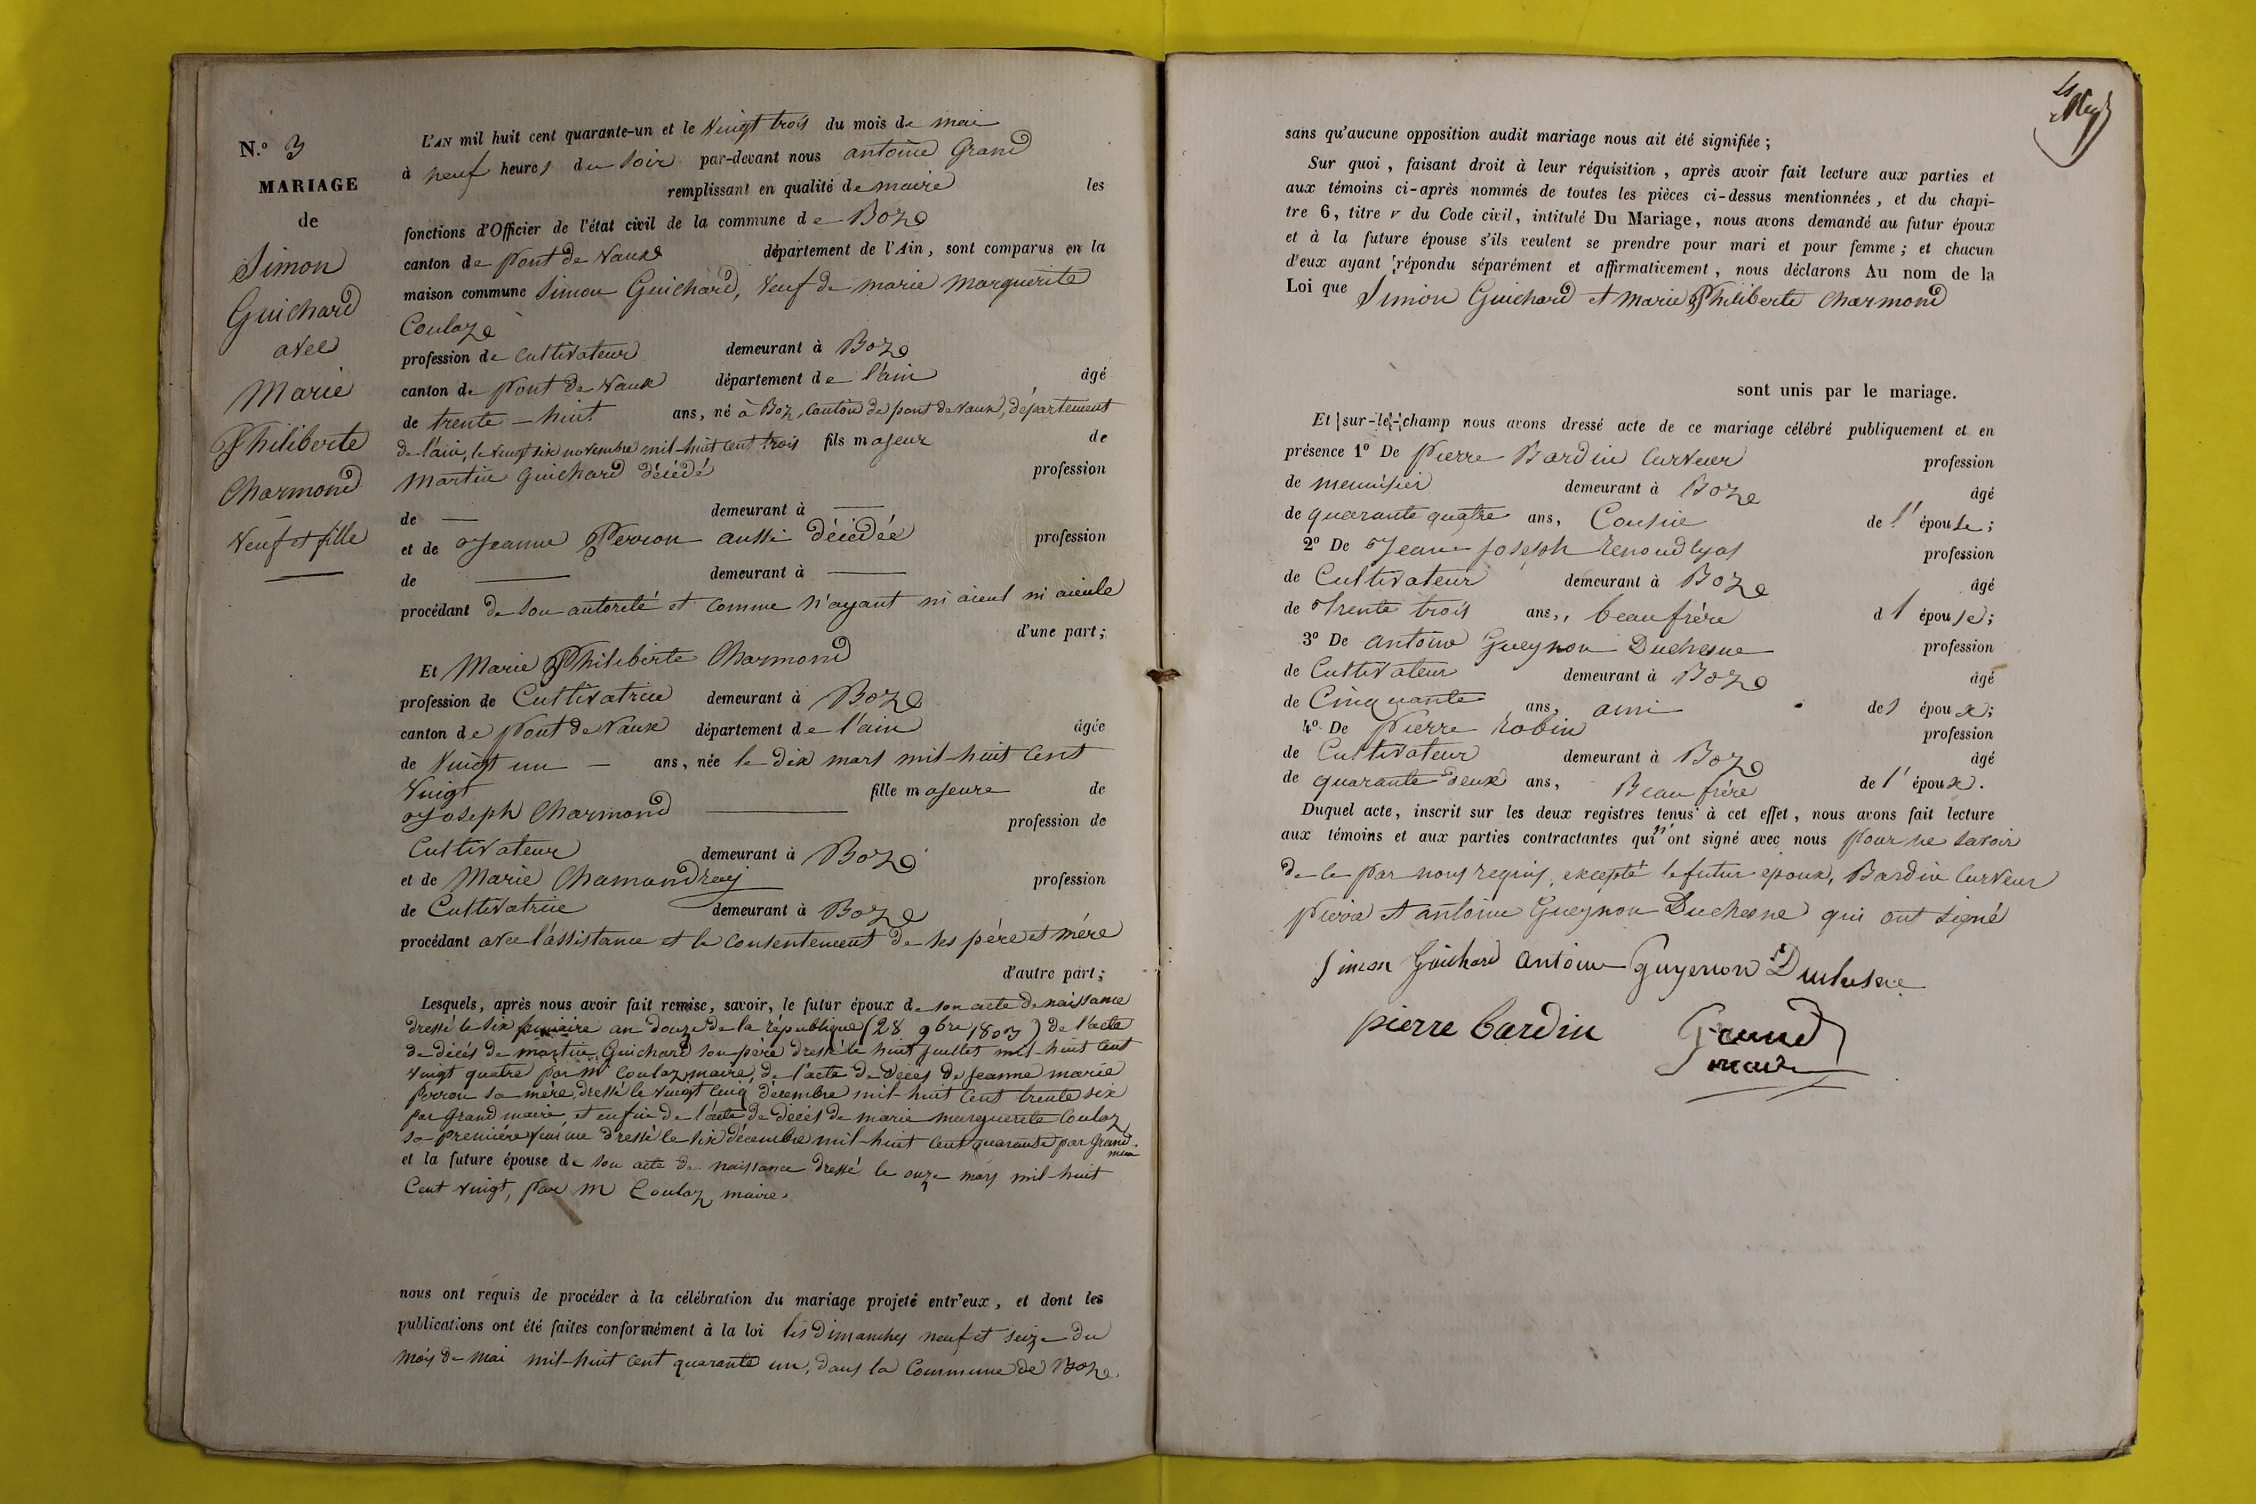 N.º 3
MARIAGE
de
Simon
Guichard
avec
Marie
Philiberte
Charmond
Veuf et fille
L'AN mil huit cent quarante-un et le Vingt trois du mois de mai
à neuf heures du soir par-devant nous antoine Grand
remplissant en qualité de maire les
fonctions d'Officier de l'état civil de la commune de Boz
canton de Pont de Vaux département de l'Ain, sont comparus en la
maison commune Simon Guichard, Veuf de marie Marguerite
Coulaz
profession de Cultivateur demeurant à Boz
canton de Pont de Vaux département de l'ain âgé
de trente - huit ans, né à Boz, canton de pont de vaux, département
de l'ain, le vingt six novembre mil-huit cent trois fils majeur de
Martin Guichard décédé profession
de — demeurant à —
et de Jeanne Perron aussi décédée profession
de — demeurant à —
procédant de son autorité et comme n'ayant ni aieul ni aieule
d'une part;
Et Marie Philiberte Charmond
profession de Cultivatrice demeurant à Boz
canton de Pont de Vaux département de l'ain âgée
de Vingt un — ans, née le dix mars mil-huit cent
Vingt fille majeure de
Joseph Charmond — profession de
Cultivateur demeurant à Boz
et de Marie Chamandrey profession
de Cultivatrice demeurant à Boz
procédant avec l'assistance et le consentement de ses père et mère
d'autre part;
Lesquels, après nous avoir fait remise, savoir, le futur époux de son acte de naissance
dressé le six an douze de la république (28 9bre 1803) de l'acte
de décès de martin Guichard son père dressé le huit juillet mil-huit cent
vingt quatre par Mr Coulaz, maire, de l'acte de décès de Jeanne marie
Perron sa mère, dressé le vingt cinq décembre mil-huit cent trente six
par Grand maire, et enfin de l'acte de décès de marie marguerite Coulaz
sa première dressé le six décembre mil-huit cent quarante par Grand
et la future épouse de son acte de naissance dressé le onze mars mil-huit
Cent vingt, par M Coulaz maire.
nous ont requis de procéder à la célébration du mariage projeté entr'eux, et dont les
publications ont été faites conformément à la loi les Dimanches neuf et seize du
mois de mai mil-huit cent quarante un, dans la Commune de Boz.
sans qu'aucune opposition audit mariage nous ait été signifiée;
Sur quoi, faisant droit à leur réquisition, après avoir fait lecture aux parties et
aux témoins ci-après nommés de toutes les pièces ci-dessus mentionnées, et du chapi-
tre 6, titre v du Code civil, intitulé Du Mariage, nous avons demandé au futur époux
et à la future épouse s'ils veulent se prendre pour mari et pour femme; et chacun
d'eux ayant répondu séparément et affirmativement, nous déclarons Au nom de la
Loi que Simon Guichard et Marie Philiberte Charmond
sont unis par le mariage.
Et sur-le-champ nous avons dressé acte de ce mariage célébré publiquement et en
présence 1º De Pierre Bardin Curveur profession
de menuisier demeurant à Boz âgé
de quarante quatre ans, Cousin de l'épouse;
2º De Jean Joseph Renoud lyas profession
de Cultivateur demeurant à Boz âgé
de trente trois ans, beau frère d l épouse;
3º De antoine Gueynon Duchesne profession
de Cultivateur demeurant à Boz âgé
de Cinquante ans, ami des époux;
4º De Pierre Robin profession
de Cultivateur demeurant à Boz âgé
de quarante deux ans, Beau frère de l'époux.
Duquel acte, inscrit sur les deux registres tenus à cet effet, nous avons fait lecture
aux témoins et aux parties contractantes qui n'ont signé avec nous pour ne savoir
de ce par nous requis, excepté le futur époux, Bardin Curveur
Pierre et antoine Gueynon Duchesne qui ont signé
Simon Guichard antoine guyenon Duchesne
pierre bardin Grand
maire